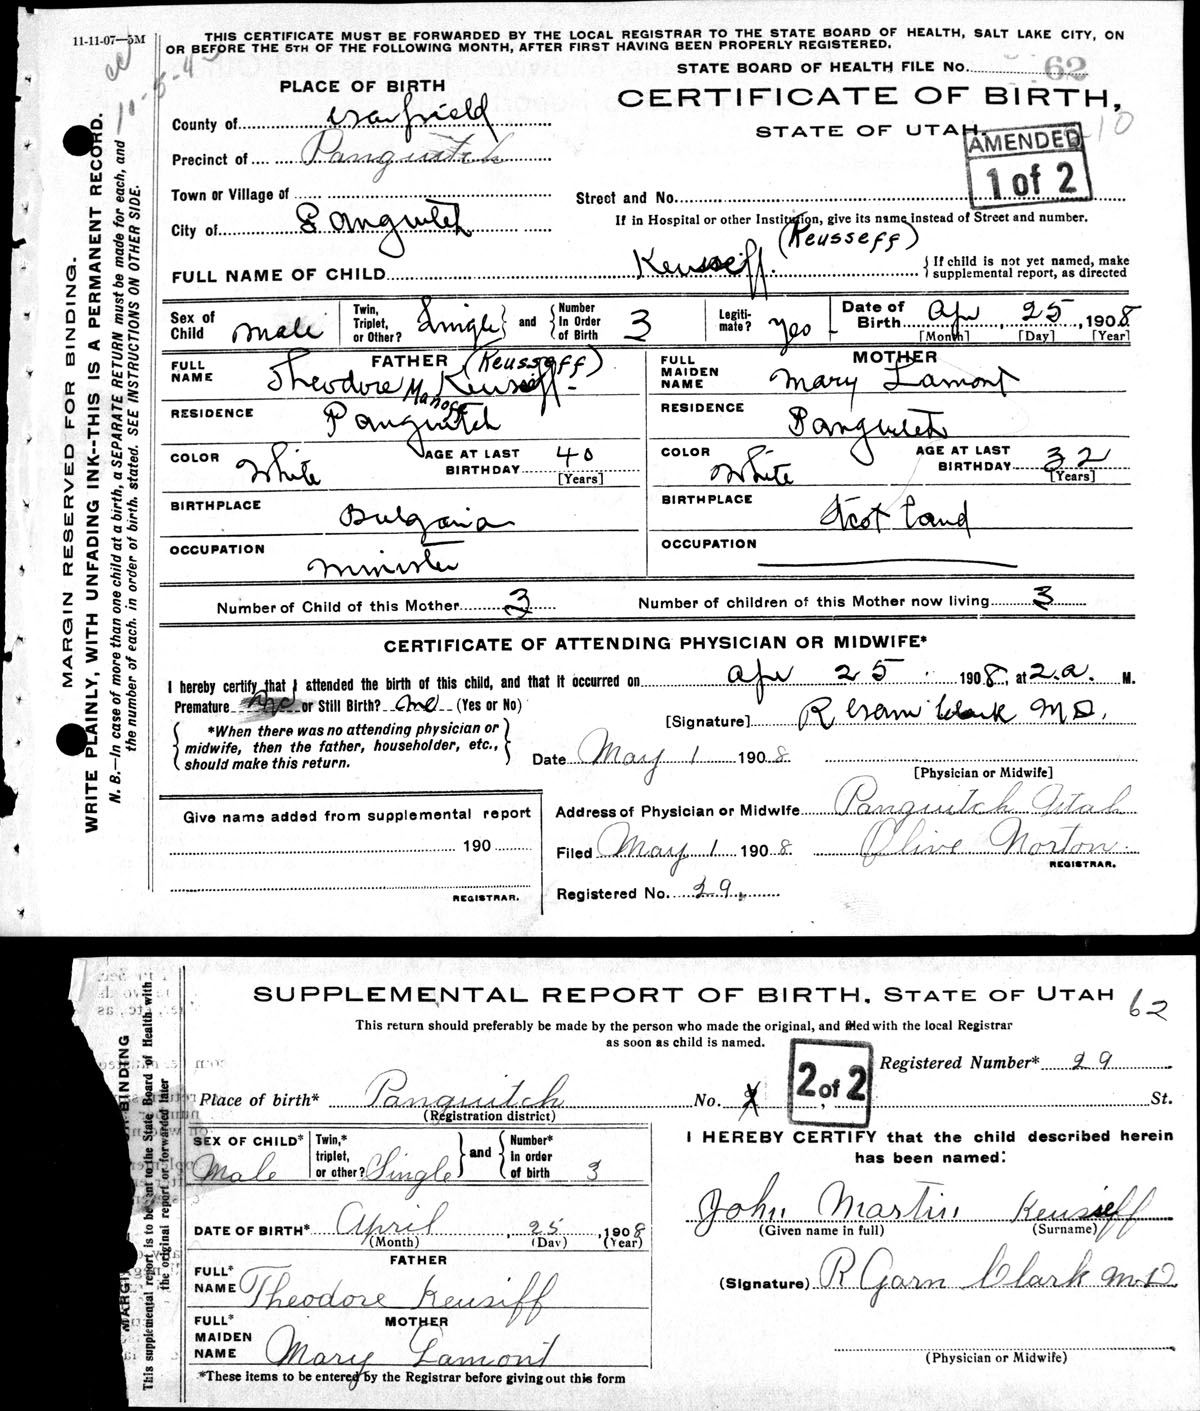 11-11-07—5M
THIS CERTIFICATE MUST BE FORWARDED BY THE LOCAL REGISTRAR TO THE STATE BOARD OF HEALTH, SALT LAKE CITY, ON
OR BEFORE THE 5TH OF THE FOLLOWING MONTH, AFTER FIRST HAVING BEEN PROPERLY REGISTERED.
STATE BOARD OF HEALTH FILE NO. 62
PLACE OF BIRTH
CERTIFICATE OF BIRTH,
STATE OF UTAH.
AMENDED
1 of 2
County of Garfield
Precinct of Panguitch
Town or Village of
Street and No.
City of Panguitch
If in Hospital or other Institution, give its name instead of Street and number.
(Keusseff)
FULL NAME OF CHILD Keusseff.
{If child is not yet named, make supplemental report, as directed
Sex of Child Male
Twin, Triplet, or Other? Single} and {Number In Order of Birth 3
Legitimate? yes
Date of Birth Apr, 25, 1908
[Month] [Day] [Year]
FATHER (Keusseff)
FULL NAME Theodore Keusseff
MOTHER
FULL MAIDEN NAME Mary Lamont
RESIDENCE Panguitch
RESIDENCE Panguitch
COLOR White AGE AT LAST BIRTHDAY 40 [Years]
COLOR White AGE AT LAST BIRTHDAY 32 [Years]
BIRTHPLACE Bulgaria
BIRTHPLACE Scotland
OCCUPATION Minister
OCCUPATION
Number of Child of this Mother 3 Number of children of this Mother now living 3
CERTIFICATE OF ATTENDING PHYSICIAN OR MIDWIFE*
I hereby certify that I attended the birth of this child, and that it occurred on Apr 25 1908, at 2.a. M.
Premature no or Still Birth? no (Yes or No)
[Signature] R Garn Clark M D.
{*When there was no attending physician or midwife, then the father, householder, etc., should make this return.}
Date May 1 1908
[Physician or Midwife]
Give name added from supplemental report
190
REGISTRAR.
Address of Physician or Midwife Panguitch Utah
Filed May 1 1908 Olive Norton.
REGISTRAR.
Registered No. 29.
MARGIN RESERVED FOR BINDING.
WRITE PLAINLY, WITH UNFADING INK--THIS IS A PERMANENT RECORD.
N. B.—In case of more than one child at a birth, a SEPARATE RETURN must be made for each, and
the number of each, in order of birth, stated. SEE INSTRUCTIONS ON OTHER SIDE.
SUPPLEMENTAL REPORT OF BIRTH, STATE OF UTAH 62
This return should preferably be made by the person who made the original, and filed with the local Registrar
as soon as child is named.
2 of 2
Registered Number* 29
Place of birth* Panguitch No. St.
(Registration district)
SEX OF CHILD* Male
Twin,* triplet, or other? Single} and {Number* in order of birth 3
I HEREBY CERTIFY that the child described herein
has been named:
John Martin Keusseff
(Given name in full) (Surname)
DATE OF BIRTH* April, 25, 1908
(Month) (Day) (Year)
FATHER
FULL* NAME Theodore Keusiff
(Signature) R Garn Clark M.D.
MOTHER
FULL* MAIDEN NAME Mary Lamont
(Physician or Midwife)
*These items to be entered by the Registrar before giving out this form
This supplemental report is to be sent to the State Board of Health with
the original report or forwarded later